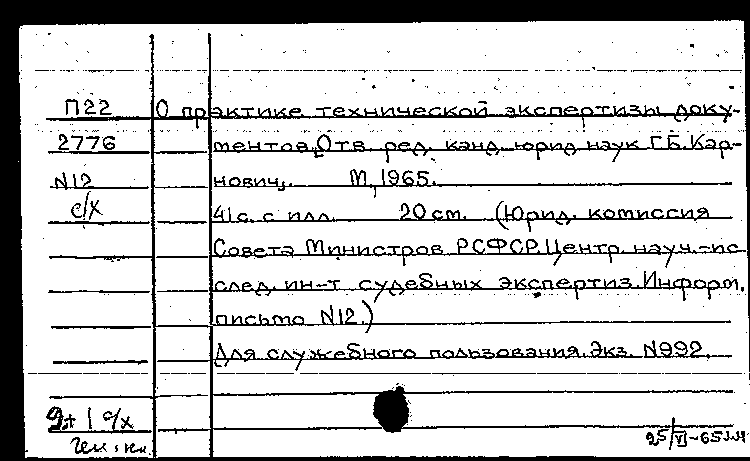 П22 О практике технической экспертизы доку-
2776 ментов. Отв. ред. канд. юрид. наук Г.Б. Кар-
N12 нович. М, 1965.
с/х 41 с. с илл. 20 см. (Юрид. комиссия
Совета Министров РСФСР. Центр. науч.-ис
след. ин-т судебных экспертиз. Информ.
письмо N12.)
Для служебного пользования. Экз. N992.
1 с/х
25/VI-65